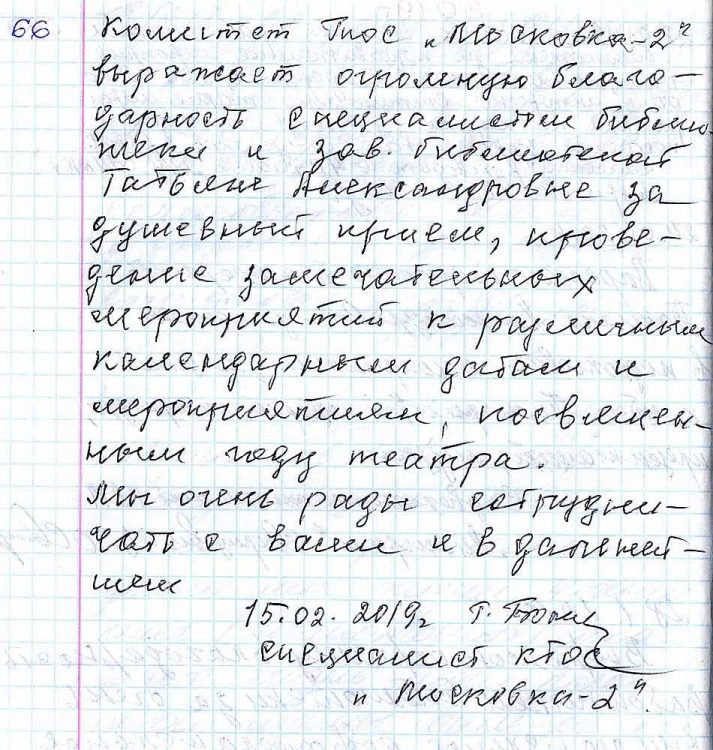 66 Комитет Тос „Московка-2"
выражает огромную благо-
дарность специалистам библио-
теки и зав. библиотекой
Татьяне Александровне за
душевный прием, прове-
дение замечательных
мероприятий к различным
календарным датам и
мероприятиям, посвящен-
ным году театра.
Мы очень рады сотрудни-
чать с вами и в дальней-
шем
15.02.2019г Т.
специалист КТОС
„Московка-2".